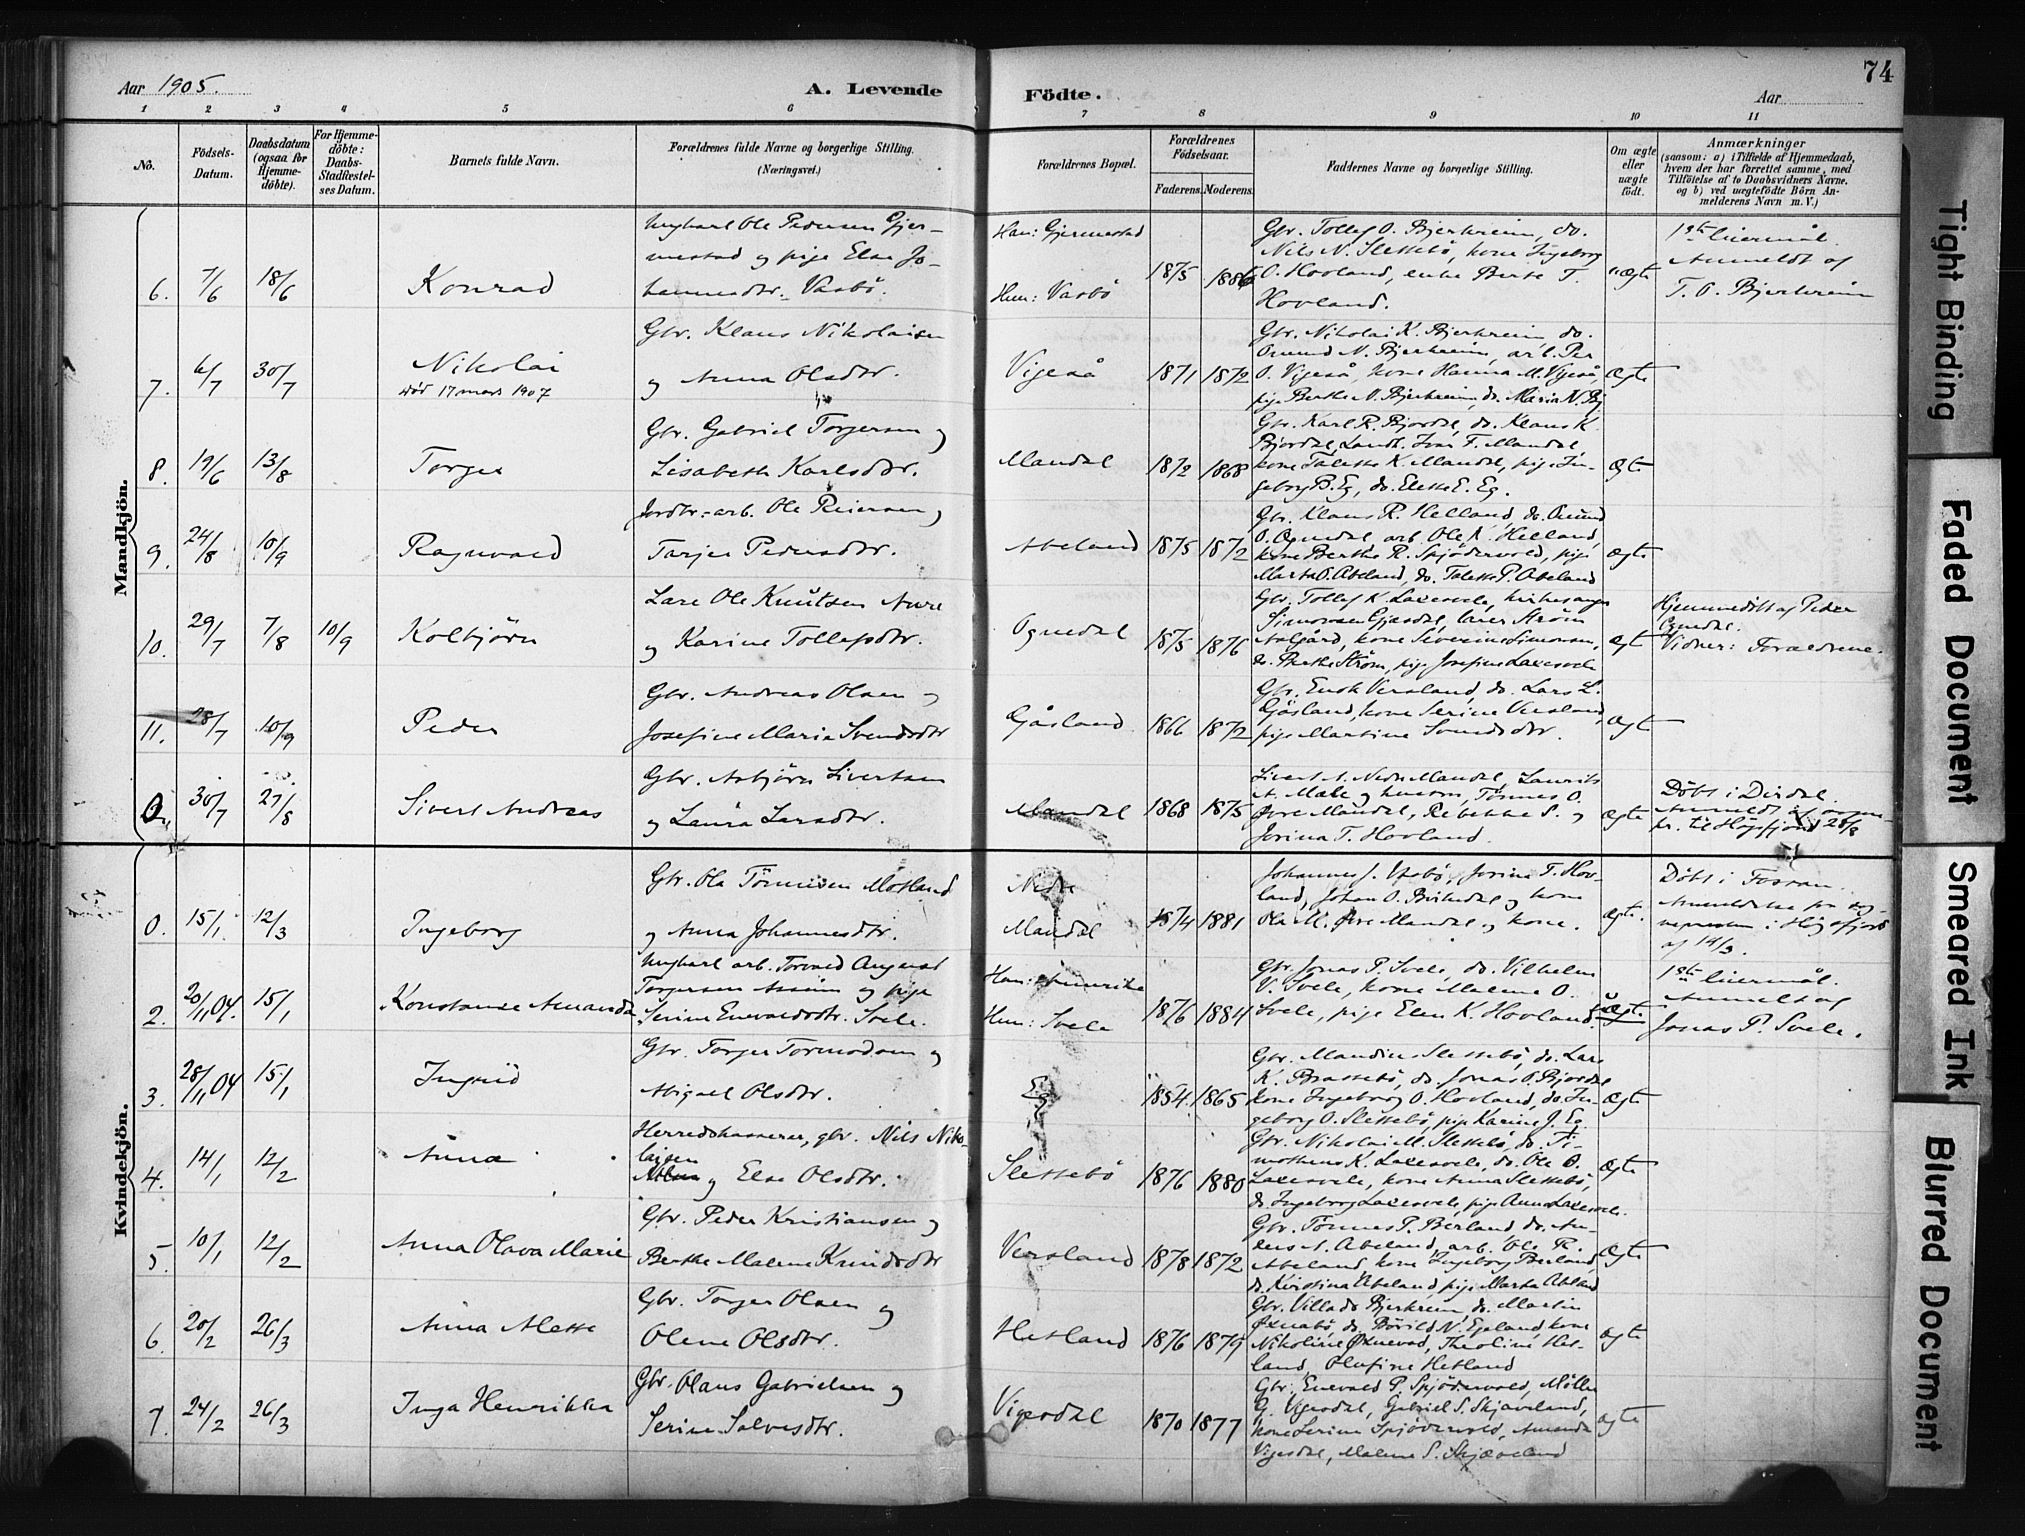 74
Aar 1905.
A. Levende
Födte.
Aar
1 2 3 4 5 6 7 8 9 10 11
No.
Födsels-
Datum.
Daabsdatum
(ogsaa for
Hjemme-
döbte).
For Hjemme-
döbte:
Daabs-
Stadfæstel-
ses Datum.
Barnets fulde Navn.
Forældrenes fulde Navne og borgerlige Stilling.
(Næringsvei.)
Forældrenes Bopæl.
Forældrenes
Födselsaar.
Faderens. Moderens.
Faddernes Navne og borgerlige Stilling.
Om ægte
eller
uægte
födt.
Anmærkninger
(saasom: a) i Tilfælde af Hjemmedaab,
hvem der har forrettet samme, med
Tilföielse af to Daabsvidners Navne,
og b) ved uægtefödte Börn An-
melderens Navn m. V.)
Mandkjön.
6. 7/6 18/6 Konrad
Ungkarl Ole Pedersen Gjer-
mestad og pige Else Jo-
hannesdtr. Vasbö.
Han: Gjermestad
Hun: Vasbö
1875 1886
Gbr. Tollef O. Bjerkreim, do.
Nils N. Slettebö, kone Ingeborg
O. Hovland, enke Berte T.
Hovland.
uægte
1ste leiermål.
Anmeldt af
T. O. Bjerkreim
7. 6/7 30/7 Nikolai
død 17 mars 1907
Gbr. Klaus Nikolaisen
og Anna Olsdtr.
Vigeså
1871 1872
Gbr. Nikolai K. Bjerkreim, do.
Omund N. Bjerkreim, arb. Per
O. Vigeså, kone Hanna M. Vigeså,
pige Berthe N. Bjerkreim, do. Maria N. Bj.
ægte
8. 19/6 13/8 Torger
Gbr. Gabriel Torgersen og
Lisabeth Karlsdtr.
Mandal
1872 1868
Gbr. Karl R. Bjordal, do. Klaus K.
Bjordal, Landh. Ivar T. Mandal,
kone Talette K. Mandal, pige In-
geborg B. Eg, do. Elette E. Eg.
ægte
9. 24/8 10/9 Ragnvald
Jordbr.-arb. Ole Reiersen og
Tarjer Pedersdtr.
Abeland
1875 1872
Gbr. Klaus R. Helland, do. Omund
O. Ognedal, arb. Ole R. Helland,
kone Berthe R. Spjödervold, pige
Marta O. Abeland, do. Talette P. Abeland
ægte
10. 29/7 7/8 10/9 Kolbjörn
Lære Ole Knutsen Aure
og Karine Tollefsdtr.
Ognedal
1875 1876
Gbr. Tollef K. Laxesvele, kirkesanger
Simonsen Gjesdal, lærer Ström
Aalgård, kone Severine Simonsen,
do. Berthe Ström, pige Josefine Laxesvele
ægt
Hjemmedöbt af Peder
Ognedal.
Vidner: Forældrene.
11. 28/7 10/9 Peder
Gbr. Andreas Olsen og
Josefine Maria Svendsdtr
Gåsland
1866 1872
Gbr. Enok Versland, do. Lars L.
Gåsland, kone Serine Versland,
pige Martine Svendsdtr.
ægt
0. 30/7 27/8 Sivert Andreas
Gbr. Asbjörn Sivertsen
og Laura Larsdtr.
Mandal
1868 1875
Sivert A. Nedre Mandal, Laurits
A. Mæle og hustru, Tönnes O.
Övre Mandal, Rebekka S. og
Jorina T. Hovland.
ægte
Döbt i Dirdal.
Anmeldt af sogne-
pr. til Högsfjord 28/8
Kvindekjön.
0. 15/1 12/3 Ingeborg
Gbr. Ola Tönnesen Motland
og Anna Johannesdtr.
Nedre
Mandal
1874 1881
Johannes J. Vasbö, Jorine T. Hov-
land, Johan O. Birkedal og kone
Ola M. Övre Mandal og kone.
ægte.
Döbt i Fossan.
Anmeldelse fra sog-
nepresten i Högsfjord
af 14/3.
2. 20/11 04. 15/1 Konstanse Amanda
Ungkarl arb. Torvald August
Torgersen Assum og pige
Serine Enevaldsdtr. Svele.
Han: Amerika
Hun: Svele
1876 1884
Gbr. Jonas P. Svele, do. Vilhelm
V. Svele, kone Malene O.
Svele, pige Elen K. Hovland.
uægte
1ste leiermål.
Anmeldt af
Jonas P. Svele.
3. 28/11 04 15/1 Ingrid
Gbr. Torger Tormodsen og
Abigael Olsdtr.
Eg
1854. 1865
Gbr. Mandius Slettebö, do. Lars
K. Brattebö, do. Jonas O. Bjordal
kone Ingeborg O. Hovland, do. In-
geborg O. Slettebö, pige Karine J. Eg.
ægte
4. 14/1 12/2 Anna
Herredskasserer, gbr. Nils Niko-
laisen
og Else Olsdtr.
Slettebö
1876 1880
Gbr. Nikolai M. Slettebö, do. Ti-
motheus K. Laxesvele, do. Ole O.
Laxesvele, kone Anna Slettebö,
do. Ingeborg Laxesvele, pige Anna Laxesvele.
ægte
5. 10/1 12/2 Anna Olava Marie
Gbr. Peder Kristiansen og
Berthe Malene Knudsdtr
Versland
1878 1872
Gbr. Tönnes P. Berland, do. An-
ders A. Abeland, arb. Ole R.
Abeland, kone Ingeborg Berland,
do. Kristina Abeland, pige Marta Abeland
ægte
6. 20/2 26/3 Anna Alette
Gbr. Torger Olsen og
Olene Olsdtr.
Hetland
1876 1879
Gbr. Villads Bjerkreim, do. Martin
Öxnabö, do. Börild N. Egeland, kone
Nikoline Öxnevad, Theoline Het-
land, Olufine Hetland
ægte
7. 24/2 26/3 Inga Henrikka
Gbr. Olaus Gabrielsen og
Serine Salvesdtr.
Vigesdal
1870 1877
Gbr. Enevald P. Spjödervold, Möller
G. Vigesdal, Gabriel S. Skjæveland,
kone Serine Spjödervold, Amanda
Vigesdal, Malene S. Skjæveland
ægte
Tight Binding
Faded Document
Smeared Ink
Blurred Document